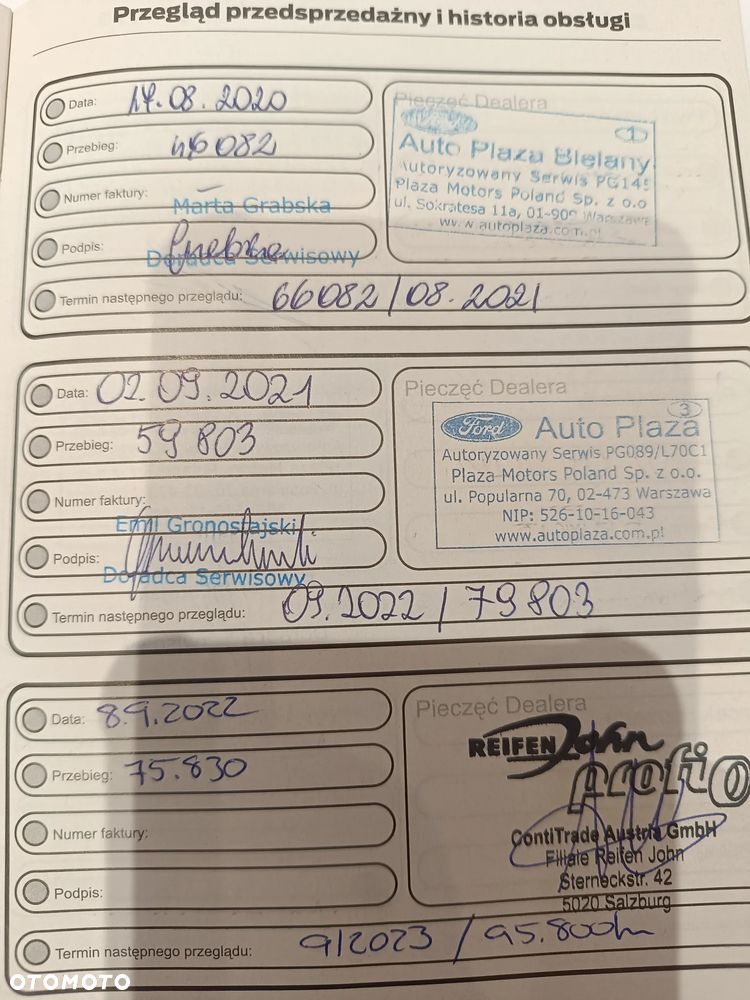 Przegląd przedsprzedażny i historia obsługi
Data: 17.08.2020
Przebieg: 46082
Numer faktury:
Marta Grabska
Podpis:
Doradca Serwisowy
Termin następnego przeglądu: 66082/08.2021
Pieczęć Dealera
1
Auto Plaza Bielany
Autoryzowany Serwis PG145
Plaza Motors Poland Sp. z o.o
ul. Sokratesa 11a, 01-909 Warszawa
www.autoplaza.com.pl
Data: 02.09.2021
Przebieg: 59803
Numer faktury:
Emil Gronostajski
Podpis:
Doradca Serwisowy
Termin następnego przeglądu: 09.2022/79803
Pieczęć Dealera
3
Ford Auto Plaza
Autoryzowany Serwis PG089/L70C1
Plaza Motors Poland Sp. z o.o.
ul. Popularna 70, 02-473 Warszawa
NIP: 526-10-16-043
www.autoplaza.com.pl
Data: 8.9.2022
Przebieg: 75.830
Numer faktury:
Podpis:
Termin następnego przeglądu: 9/2023 / 95.800km
Pieczęć Dealera
REIFEN John
profi
ContiTrade Austria GmbH
Filiale Reifen John
Sterneckstr. 42
5020 Salzburg
OTOMOTO